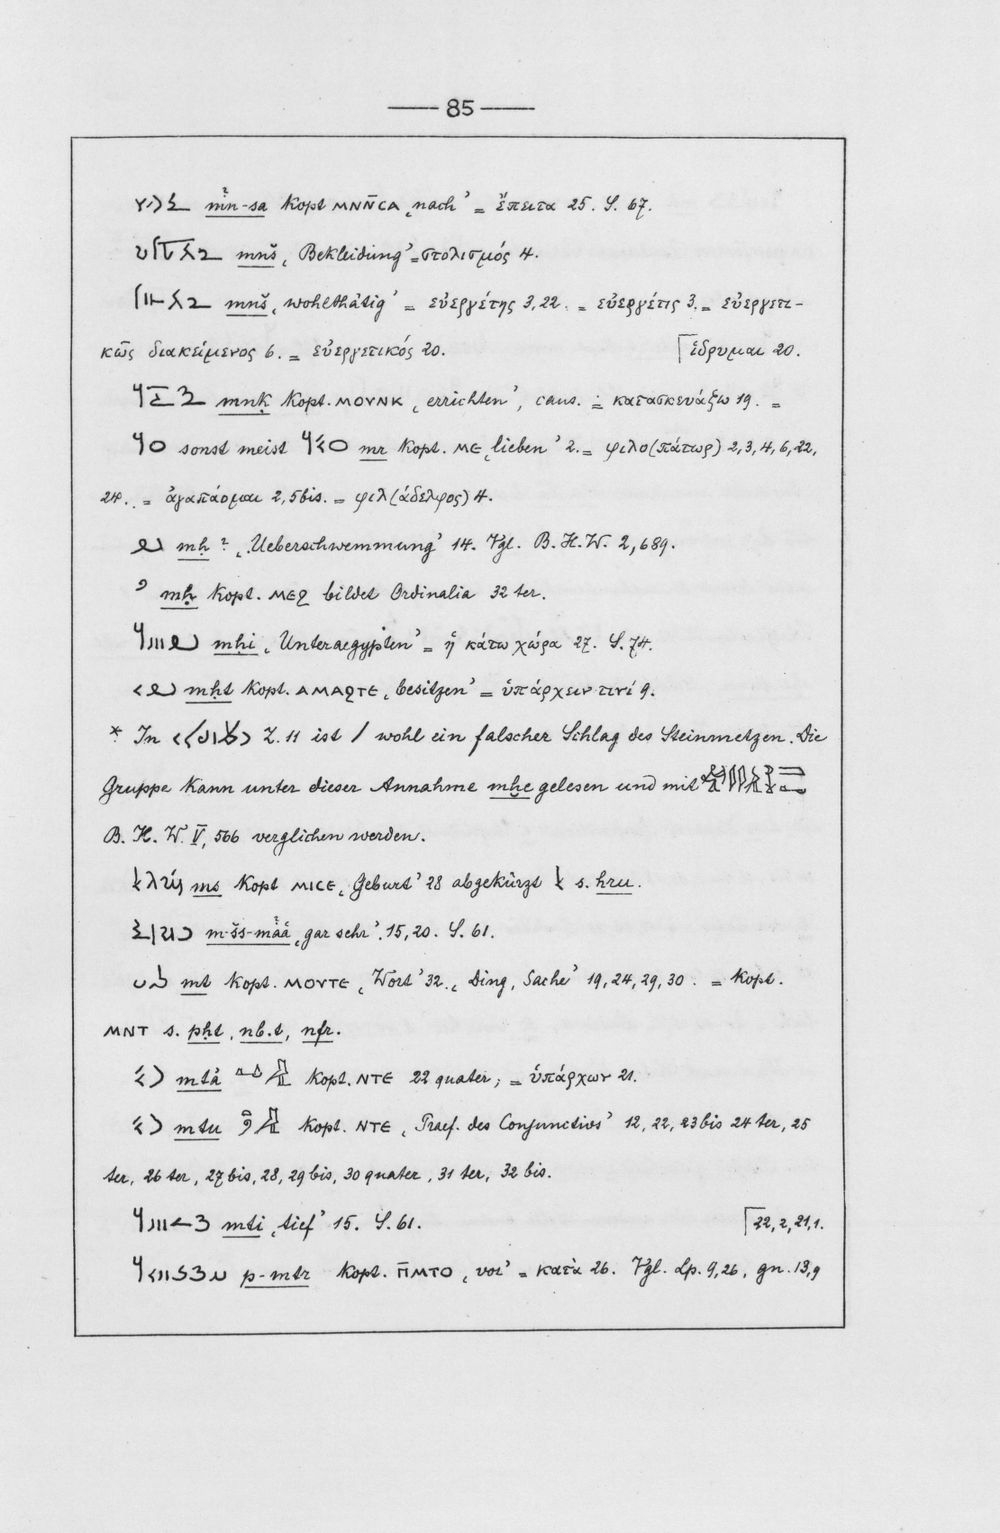 — 85 —
mn-sa Kopt ⲙⲛⲛ̄ⲥⲁ ‚nach’ = ἔπειτα 25. S. 67.
mnš ‚Bekleidung’ = στολισμός 4.
mnš ‚wohlthätig’ = εὐεργέτης 3, 22. = εὐεργέτις 3. = εὐεργετι-
κῶς διακείμενος 6. = εὐεργετικός 20. [ἵδρυμαι 20.
mnḳ Kopt. ⲙⲟⲩⲛⲕ ‚errichten’, caus. = κατασκευάζω 19. =
sonst meist mr Kopt. ⲙⲉ ‚lieben’ 2. = φιλο(πάτωρ) 2, 3, 4, 6, 22,
24. = ἀγαπάομαι 2, 5 bis. = φιλ(άδελφος) 4.
mḥ ? ‚Ueberschwemmung’ 14. Vgl. B. H. W. 2, 689.
mḥ Kopt. ⲙⲉϩ bildet Ordinalia 32 ter.
mḥi ‚Unteraegypten’ = ἡ κάτω χώρα 27. S. 74.
mḥt Kopt. ⲁⲙⲁϩⲧⲉ ‚besitzen’ = ὑπάρχειν τινί 9.
* In Z. 11 ist / wohl ein falscher Schlag des Steinmetzen. Die
Gruppe kann unter dieser Annahme mḫe gelesen und mit
B. H. W. V, 566 verglichen werden.
ms Kopt ⲙⲓⲥⲉ ‚Geburt’ 28 abgekürzt s. hru.
m-šs-mȧȧ ‚gar sehr’ 15, 20. S. 61.
mt Kopt. ⲙⲟⲩⲧⲉ ‚Wort’ 32. ‚Ding, Sache’ 19, 24, 29, 30. = Kopt.
ⲙⲛⲧ s. pḥt, nb.t, nfr.
mtȧ Kopt. ⲛⲧⲉ 22 quater; = ὑπάρχων 21.
mtu Kopt. ⲛⲧⲉ ‚Praef. des Conjunctivs’ 12, 22, 23 bis 24 ter, 25
ter, 26 ter, 27 bis, 28, 29 bis, 30 quater, 31 ter, 32 bis.
mti ‚tief’ 15. S. 61. [22, 2, 21, 1.
p-mtr Kopt. ⲡ̄ⲙⲧⲟ ‚vor’ = κατὰ 26. Vgl. Lp. 9, 26, gn. 13, 9